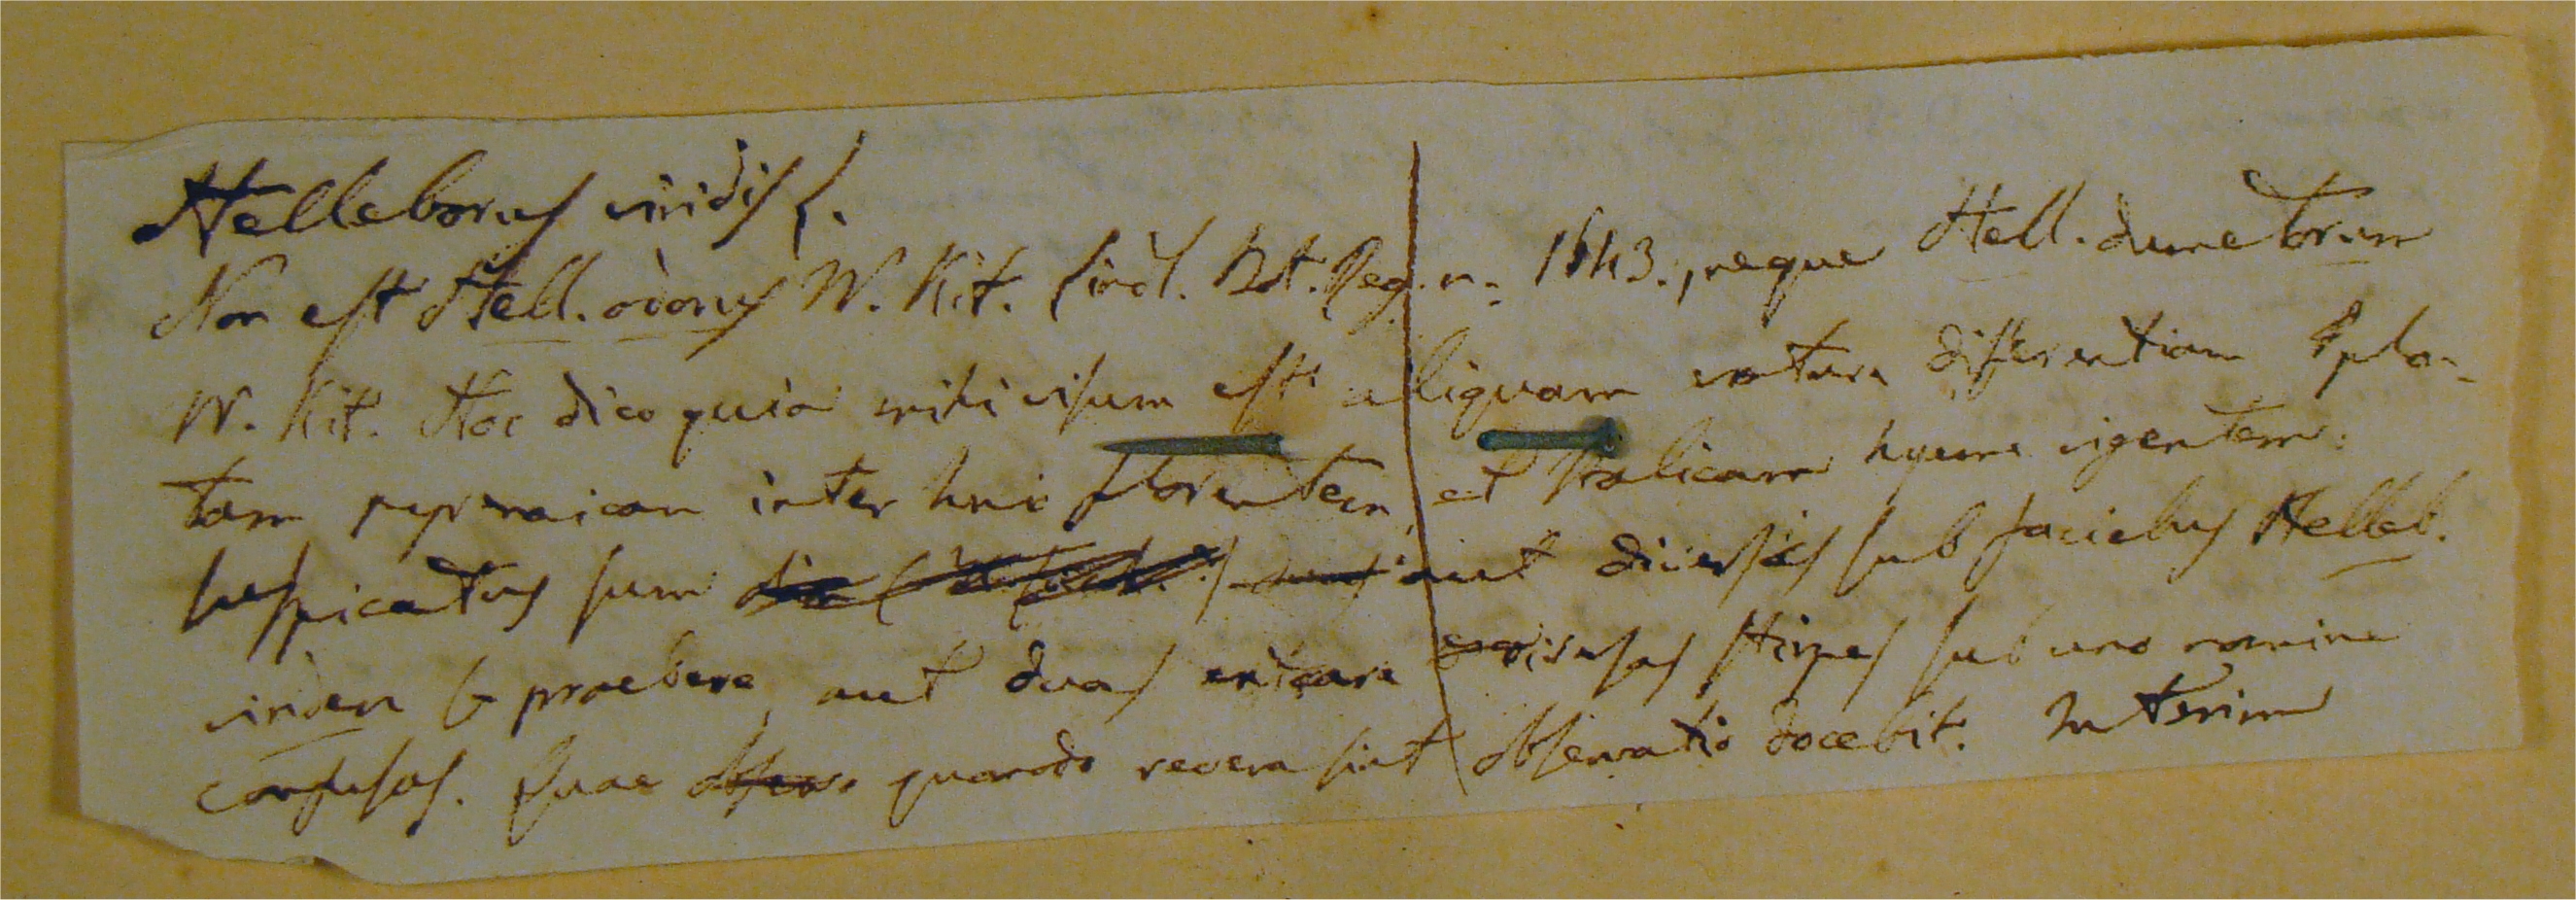 Helleborus viridis L.
Non est Hell. odorus W. Kit. Lindl. Bot. Reg. n. 1643., neque Hell. dumetorum
W. Kit. Hoc dico quia mihi visum est aliquam extare differentiam plan-
tam pyrenaicam inter huc florentem, et italicam hyeme vigentem.
suspicatus sum aut diversis sub faciebus Helleb.
viridem praebere, aut duas extare diversas stirpes sub uno nomine
confusas. Quae quando revera sint observatio docebit. Interim